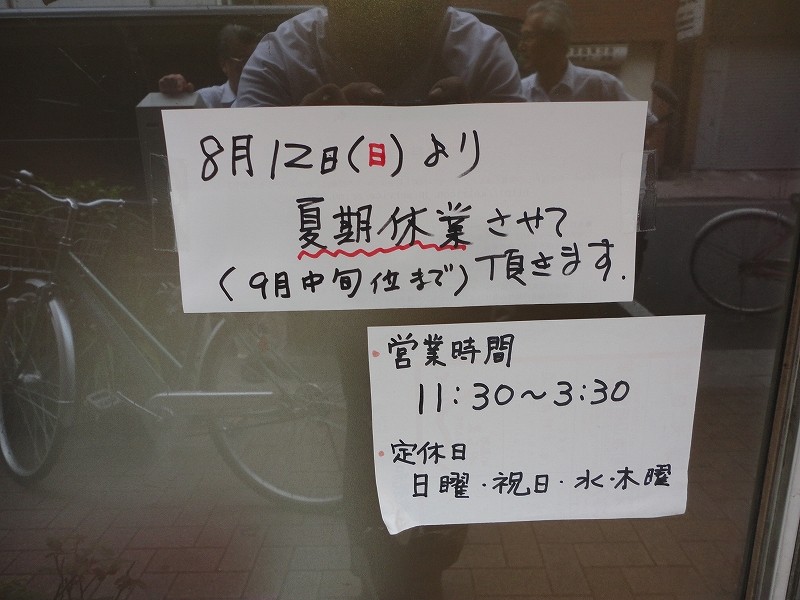 8月12日(日)より
夏期休業させて
(9月中旬位まで)頂きます.
・営業時間
11:30～3:30
・定休日
日曜・祝日・水・木曜